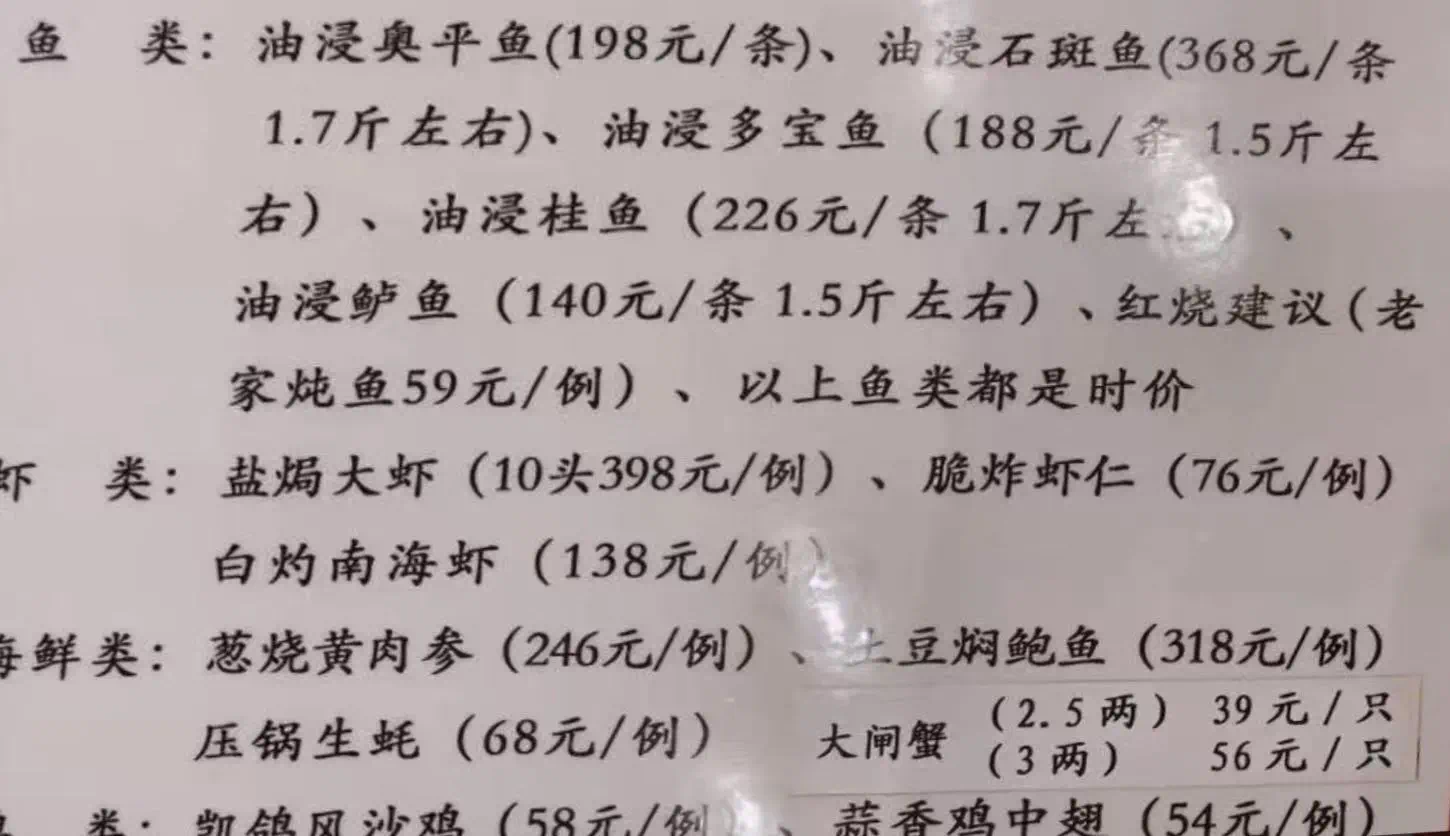 鱼 类：油浸奥平鱼(198元/条)、油浸石斑鱼(368元/条
1.7斤左右)、油浸多宝鱼（188元/条 1.5斤左
右）、油浸桂鱼（226元/条 1.7斤左右）、
油浸鲈鱼（140元/条 1.5斤左右）、红烧建议（老
家炖鱼59元/例）、以上鱼类都是时价
虾 类：盐焗大虾（10头398元/例）、脆炸虾仁（76元/例）
白灼南海虾（138元/例）
海鲜类：葱烧黄肉参（246元/例）、土豆焖鲍鱼（318元/例）
压锅生蚝（68元/例）
大闸蟹 （2.5两） 39元/只
（3两） 56元/只
类：凯鸽风沙鸡（58元/例）、蒜香鸡中翅（54元/例）